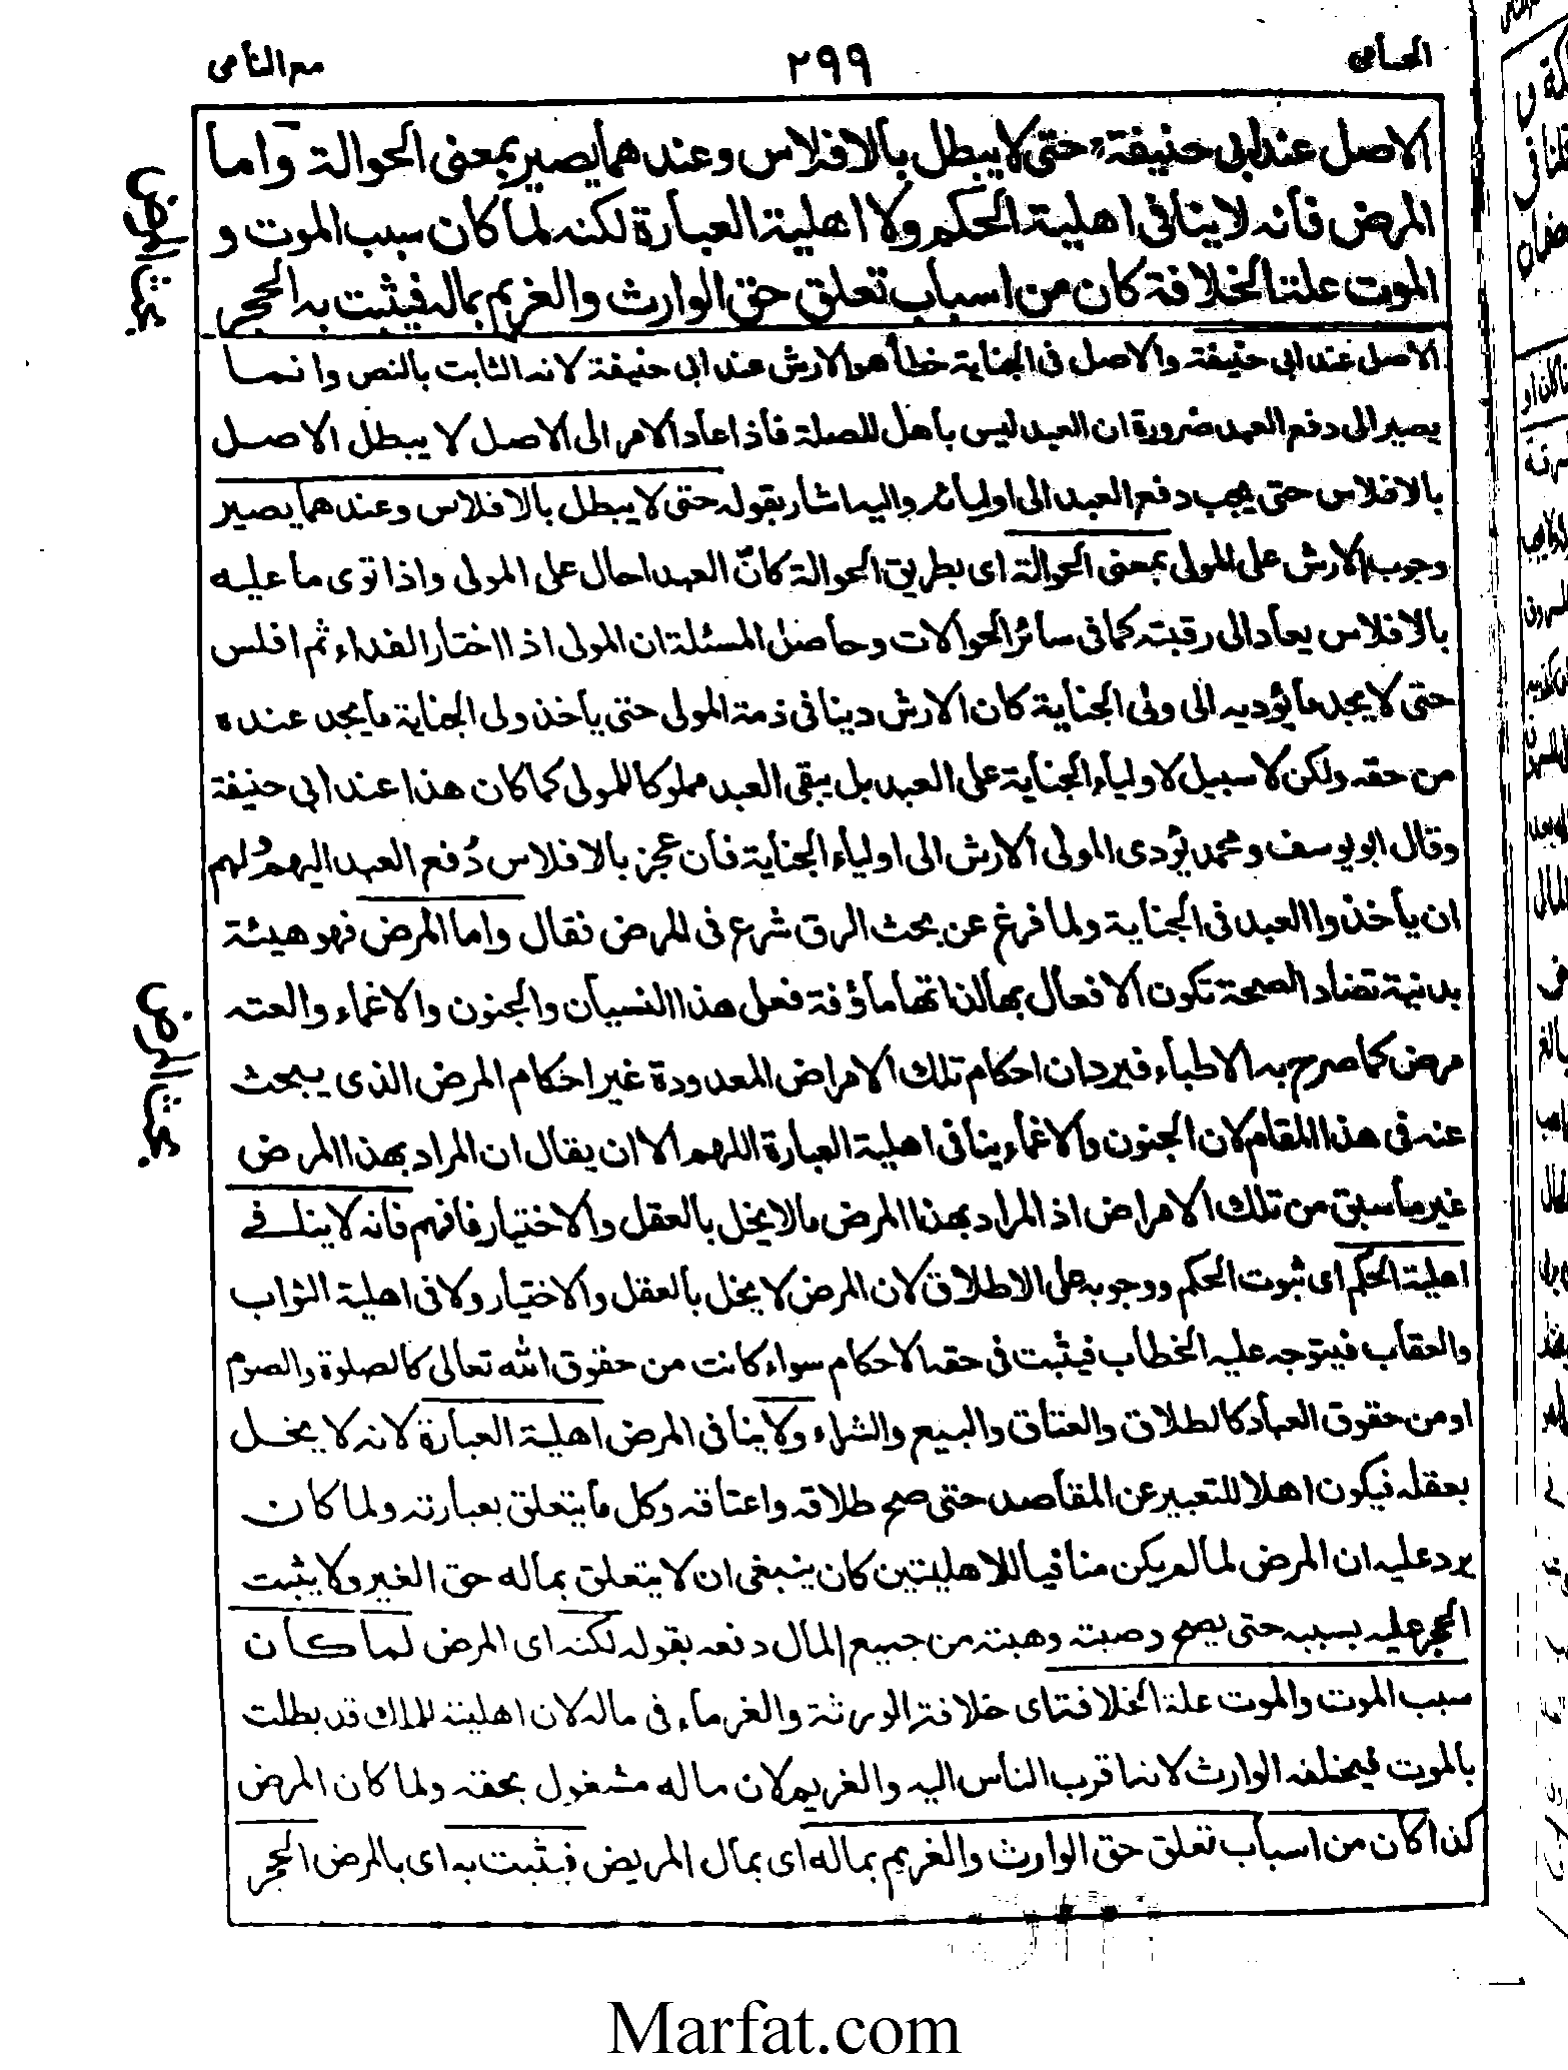 الحسامى ٢٩٩ مع النامى
الاصل عند ابى حنيفة حتى لا يبطل بالافلاس وعندهما يصير بمعنى الحوالة واما
المرض فانه لا ينافى اهلية الحكم ولا اهلية العبارة لكنه لما كان سبب الموت و
الموت علة الخلافة كان من اسباب تعلق حق الوارث والغريم بماله فيثبت به الحجر
الاصل عند ابى حنيفة والاصل فى الجناية خطأ هو الارش عند ابى حنيفة لانه الثابت بالنص وانما
يصير الى دفع العبد ضرورة ان العبد ليس باهل للصلة فاذا عاد الامر الى الاصل لا يبطل الاصل
بالافلاس حتى يجب دفع العبد الى اوليائه واليه اشار بقوله حتى لا يبطل بالافلاس وعندهما يصير
وجوب الارش على المولى بمعنى الحوالة اى بطريق الحوالة كانّ العبد احال على المولى واذا توى ما عليه
بالافلاس يعاد الى رقبته كما فى سائر الحوالات وحاصل المسئلة ان المولى اذا اختار الفداء ثم افلس
حتى لا يجد ما يؤديه الى ولى الجناية كان الارش دينا فى ذمة المولى حتى يأخذ ولى الجناية ما يجد عنده
من حقه ولكن لا سبيل لاولياء الجناية على العبد بل يبقى العبد مملوكا للمولى كما كان هذا عند ابى حنيفة
وقال ابو يوسف ومحمد يؤدى المولى الارش الى اولياء الجناية فان عجز بالافلاس دُفع العبد اليهم ولهم
ان يأخذوا العبد فى الجناية ولما فرغ عن بحث الرق شرع فى المرض فقال واما المرض فهو هيئة
بدنية تضاد الصحة تكون الافعال بها لذاتها ماؤفة فعلى هذا النسيان والجنون والاغماء والعته
مرض كما صرح به الاطباء فيرد ان احكام تلك الامراض المعدودة غير احكام المرض الذى يبحث
عنه فى هذا المقام لان الجنون والاغماء ينافى اهلية العبارة اللهم الا ان يقال ان المراد بهذا المرض
غير ما سبق من تلك الامراض اذ المراد بهذا المرض ما لا يخل بالعقل والاختيار فافهم فانه لا ينافى
اهلية الحكم اى ثبوت الحكم ووجوبه على الاطلاق لان المرض لا يخل بالعقل والاختيار ولا فى اهلية الثواب
والعقاب فيتوجه عليه الخطاب فيثبت فى حقه الاحكام سواء كانت من حقوق الله تعالى كالصلوة والصوم
او من حقوق العباد كالطلاق والعتاق والبيع والشراء ولا ينافى المرض اهلية العبارة لانه لا يخل
بعقله فيكون اهلا للتعبير عن المقاصد حتى صح طلاقه واعتاقه وكل ما يتعلق بعبارته ولما كان
يرد عليه ان المرض لما لم يكن منافيا للاهليتين كان ينبغى ان لا يتعلق بماله حق الغير ولا يثبت
الحجر عليه بسببه حتى يصح وصيته وهبته من جميع المال دفعه بقوله لكنه اى المرض لما كان
سبب الموت والموت علة الخلافة اى خلافة الورثة والغرماء فى ماله لان اهلية الملك قد بطلت
بالموت فيخلفه الوارث لانه اقرب الناس اليه والغريم لان ماله مشغول بحقه ولما كان المرض
كذا كان من اسباب تعلق حق الوارث والغريم بماله اى بمال المريض فيثبت به اى بالمرض الحجر
بحث المرض
بحث المرض
Marfat.com